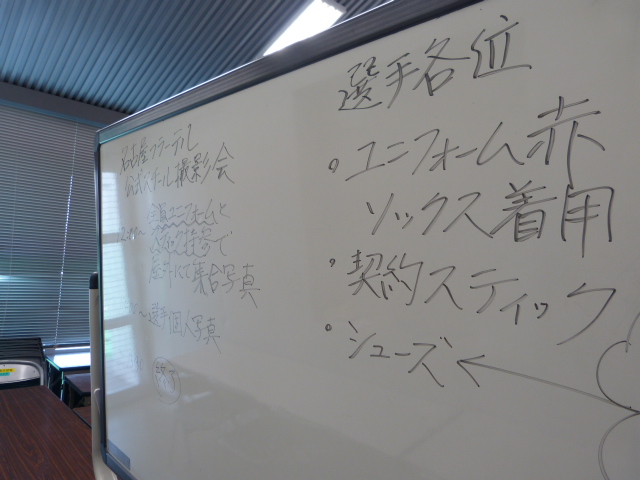 選手各位
。ユニフォーム赤
ソックス着用
。契約スティック
。シューズ
名古屋フラーテル
公式スチール撮影会
ユニフォームと
屋外にて集合写真
選手個人写真